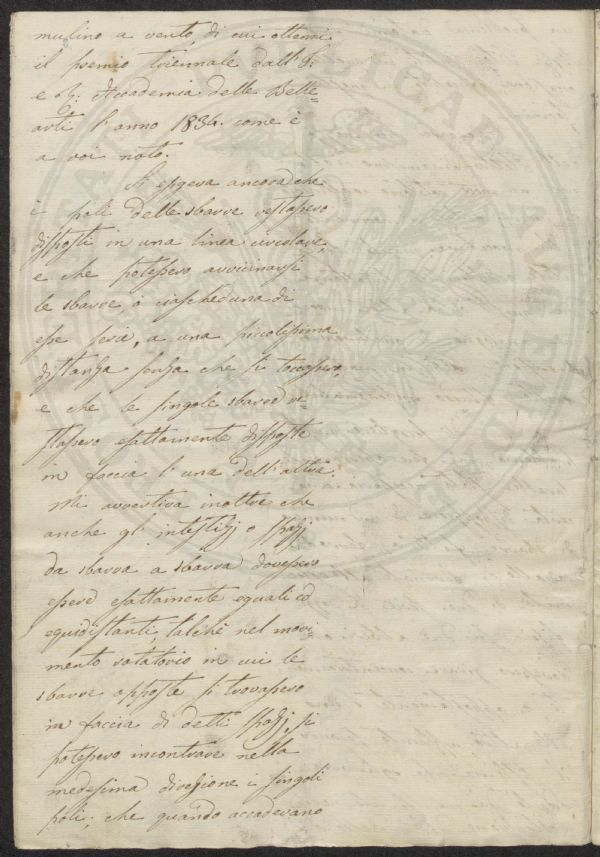 mulino a vento di cui ottenni
il premio triennale dall' I:
e R: Accademia delle Belle
arti l'anno 1834. come è
a voi noto.
Si esigeva ancora che
i poli delle sbarre restassero
disposti in una linea circolare,
e che potessero avvicinarsi
le sbarre, o ciascheduna di
esse serie, a una piccolissima
distanza senza che si toccassero,
e che le singole sbarre re=
stassero esattamente disposte
in faccia l'una dell'altra.
Mi avvertiva inoltre che
anche gl' intestizj o spazj
da sbarra a sbarra dovessero
essere esattamente eguali ed
equidistanti, talchè nel movi=
mento rotatorio in cui le
sbarre opposte si trovassero
in faccia di detti spazj, si
potessero incontrare nella
medesima direzione i singoli
poli; che quando accadevano